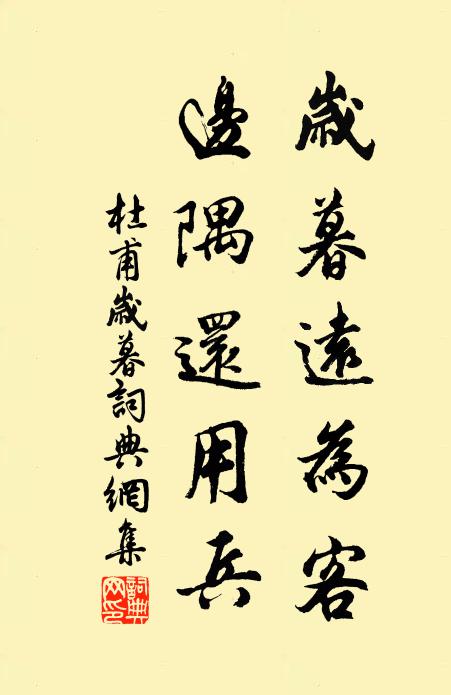 歲暮遠為客
邊隅還用兵
杜甫歲暮詞典網集
詞典网印